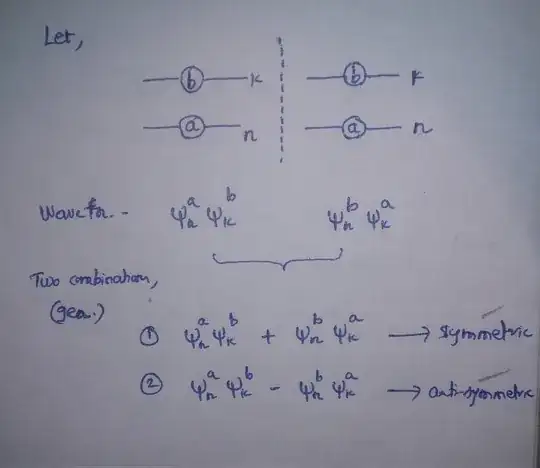 Let,
b k b k
a n a n
Wavefn. - ψₙᵃ ψₖᵇ ψₙᵇ ψₖᵃ
Two combination,
(gen.)
① ψₙᵃ ψₖᵇ + ψₙᵇ ψₖᵃ → symmetric
② ψₙᵃ ψₖᵇ - ψₙᵇ ψₖᵃ → anti-symmetric